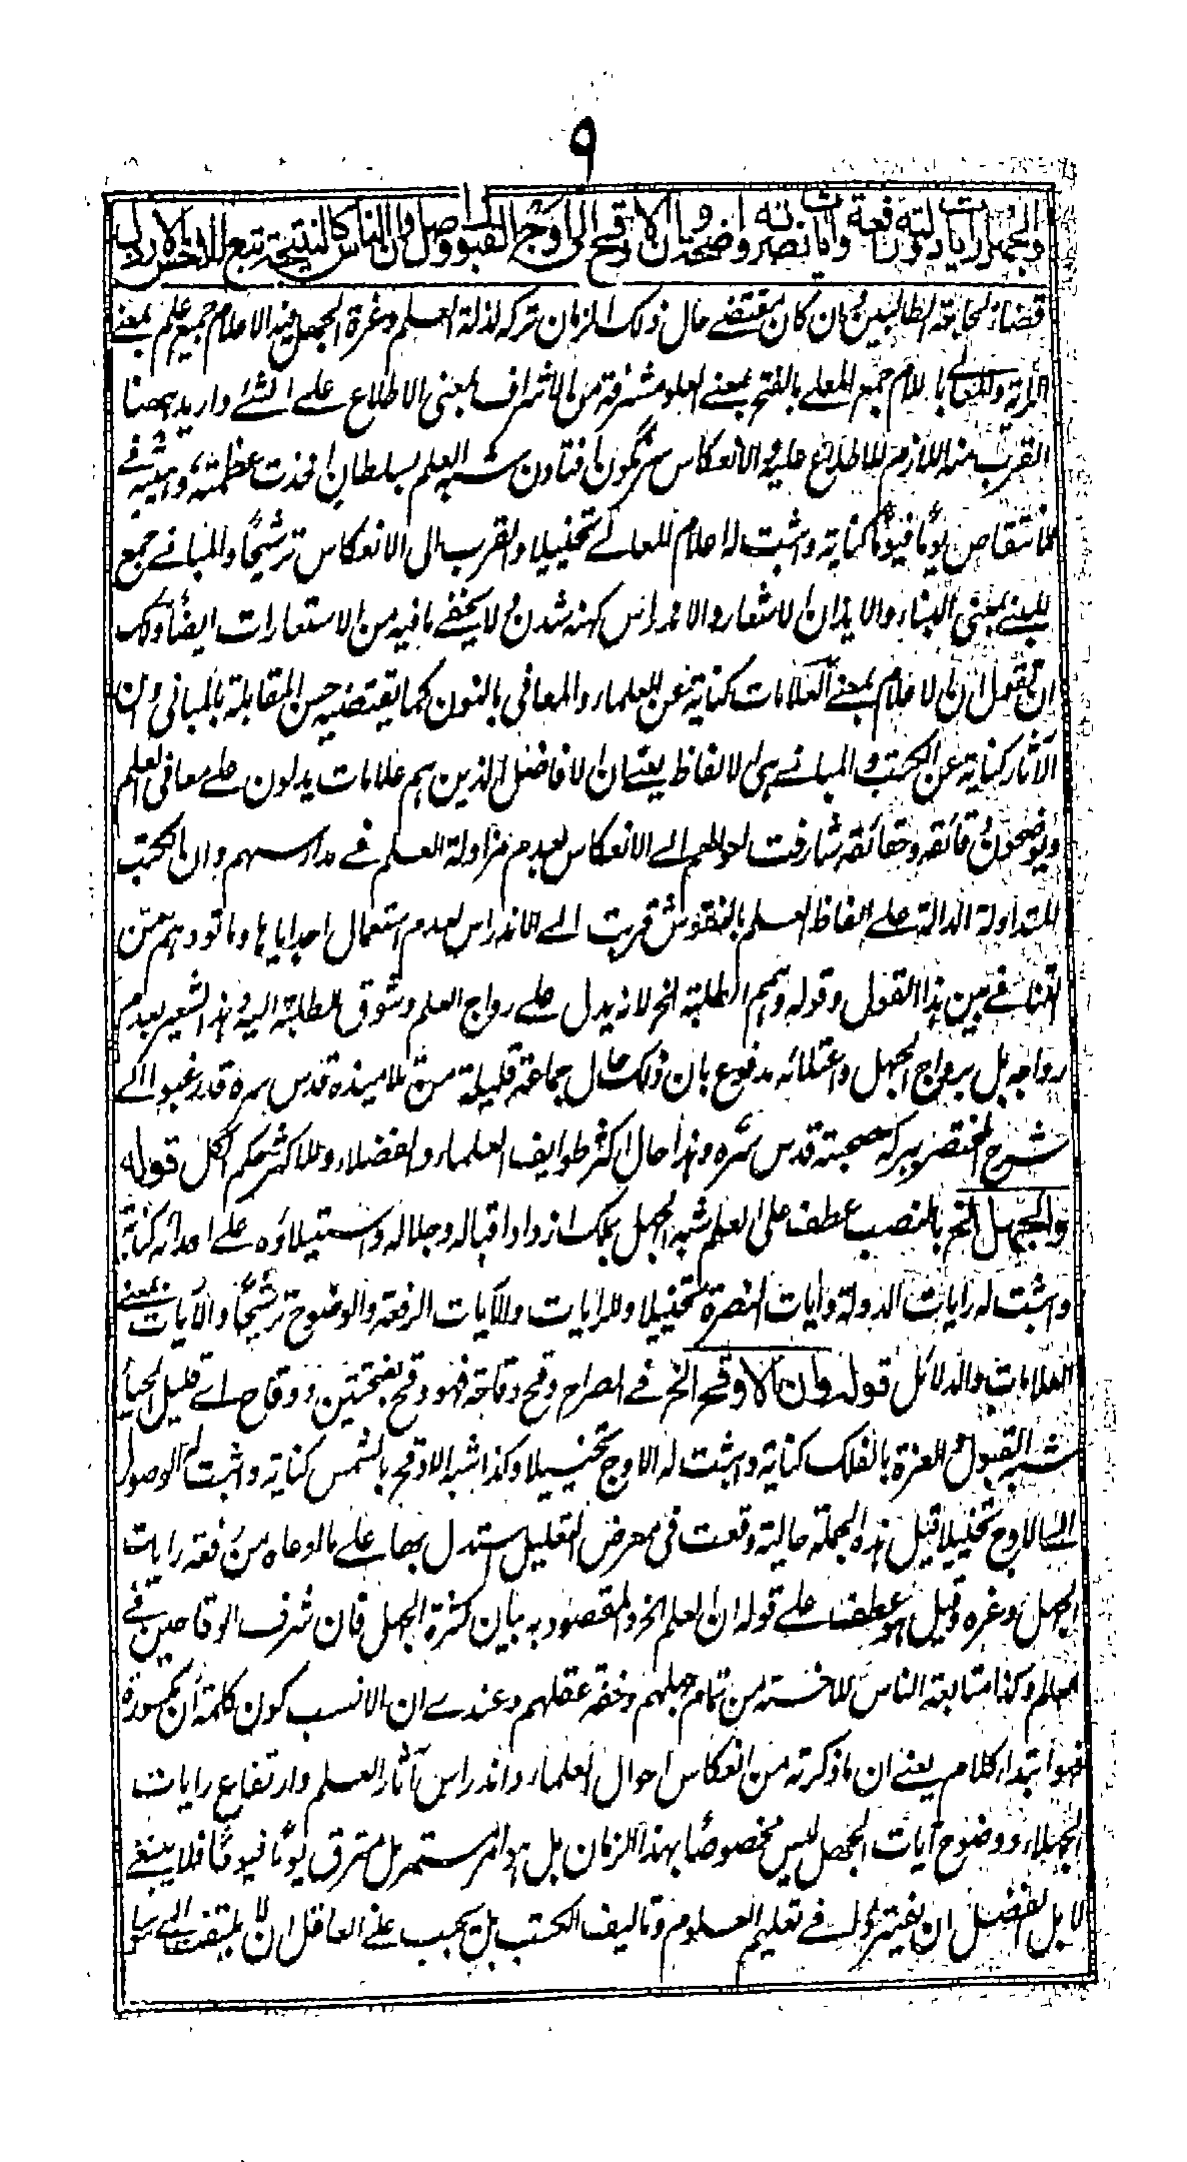 ٩
والجهل رايات دولته رافعة وآيات نصرته واضحة وان الاوقح الى اوج القبول واصل وان الناس كالنتيجة تتبع للاخس الارذل
قضاء لحاجة الطالبين وان كان مقتضے حال ذلك الزمان تركه لذلة العلم وعزة الجهل فيه الاعلام جميع علم بمعنے
الراية والمعالے باللام جمع المعلے بالفتح بمعنے العلو مشرفة من الاشراف بمعنى الاطلاع علے الشئے واريد ههنا
القرب منه اللازم للاطلاع عليه والانعكاس سرنگون افتادن شبه العلم بسلطان اخذت عظمته وهيبته فے
الانتقاص يوما فيوما كناية واثبت له اعلام المعالے تخييلا والقرب الى الانعكاس ترشيحا والمبانے جمع
المبنے بمعنى البناء والايذان الاشعار والاندراس كهنه شدن ولا يخفے ما فيه من الاستعارات ايضا ولك
ان تقول ان الاعلام بمعنے العلامات كناية عن العلماء والمعانى بالنون كما يقتضيه حسن المقابلة بالمبانى وان
الآثار كناية عن الكتب والمبانے هى الالفاظ يعنے ان الافاضل الذين هم علامات يدلون علے معانى العلم
ويوضحون دقائقه وحقائقه شارفت احوالهم الے الانعكاس لعدم مزاولة العلم فے مدارسهم وان الكتب
المتداولة الدالة علے الفاظ العلم بالنقوش قربت الے الاندراس لعدم استعمال اجدايها وما توهم من
التنافے بين هذا القول وقوله وهمم الطلبة الخ لانه يدل علے رواج العلم وشوق الطلبة اليه وهذا يشعر بعدم
رواجه بل برواج الجهل واعتلائه مدفوع بان ذلك حال جماعة قليلة من تلامذه قدس سره قد رغبوا الے
شرح المختصر ببركة صحبته قدس سره وهذا حال اكثر طوايف العلماء والفضلاء وللاكثر حكم الكل قوله
والجهل الخ بالنصب عطف على العلم شبه الجهل بملك ازداد اقباله وجلاله واستيلاؤه علے اعدائه كناية
واثبت له رايات الدولة وآيات النصرة تخييلا وللرايات والآيات الرفعة والوضوح ترشيحا والآيات بمعنے
العلامات والدلائل قوله وان الاوقح الخ فے الصراح وقح وقاحة فهو وقح بفتحتين ووقاح اے قليل الحياء
شبه القبول والعزة بالفلك كناية واثبت له الاوج تخييلا وكذا شبه الاوقح بالشمس كناية واثبت له الوصول
الے الاوج تخييلا قيل هذه الجملة حالية وقعت فى معرض التعليل استدل بها علے ما ادعاه من رفعة رايات
الجهل وغيره وقيل هو عطف علے قوله ان العلم الخ والمقصود به بيان كثرة الجهل فان شرف الوقاحين فے
العالم وكذا متابعة الناس للاخسة من تمام جهلهم وخفة عقلهم وعندے ان الانسب كون كلمة ان مكسورة
فهو ابتداء كلام يعنے ان ما ذكرته من انعكاس احوال العلماء واندراس آثار العلم وارتفاع رايات
الجهلاء ووضوح آيات الجهل ليس مخصوصا بهذا الزمان بل هو امر مستمر بل مترق يوما فيوما فلا ينبغے
لاهل الفضل ان يفتروا فے تعليم العلوم وتاليف الكتب بل يجب علے العاقل ان لا يلتفت الے